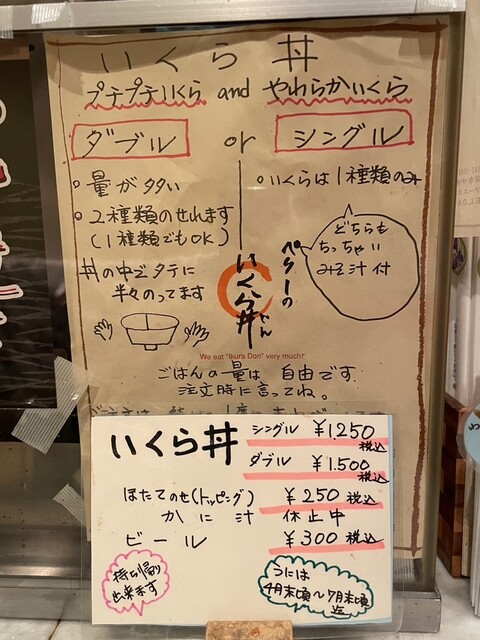 いくら丼
プチプチいくら and やわらかいくら
ダブル or シングル
○量が多い
○2種類のせれます
(1種類でもOK)
丼の中でタテに
半々のってます
○いくらは1種類のみ
どちらも
ちっちゃい
みそ汁付
いくら丼
We eat "Ikura Don" very much!
ごはんの量は 自由です
注文時に言ってね。
いくら丼
シングル ¥1,250 税込
ダブル ¥1,500 税込
ほたてのせ(トッピング) ¥250 税込
かに汁 休止中
ビール ¥300 税込
持ち帰り
出来ます
うには
4月末頃〜7月末頃
迄